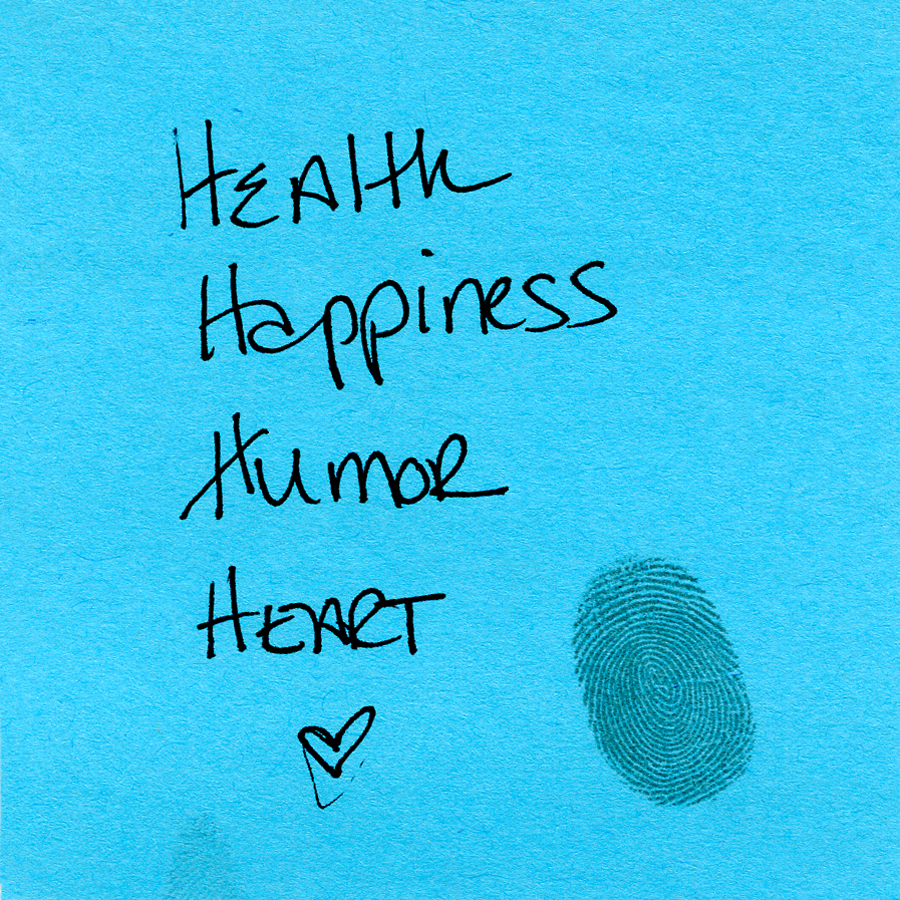 Health
Happiness
Humor
Heart